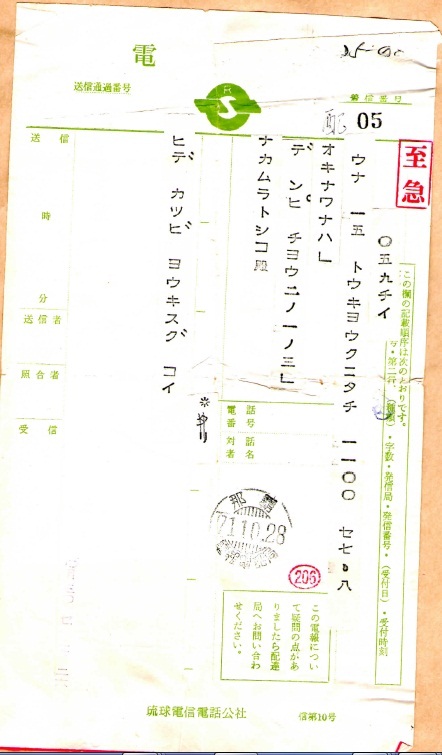 電
送信通過番号
着信番号
配 05
至急
この欄の記載順序は次のとおりです。
・字数・発信局・発信番号・(受付日)・受付時刻
〇五九チイ
ウナ 一五 トウキヨウクニタチ 一一〇〇
オキナワナハ」
ナカムラトシコ殿
ヨウキスグ コイ
送信
時
分
送信者
照合者
受信
電話番号
対話者名
那覇
71.10.28
206
この電報につい
て疑問の点があ
りましたら配達
局へお問い合わ
せください。
琉球電信電話公社
信第10号